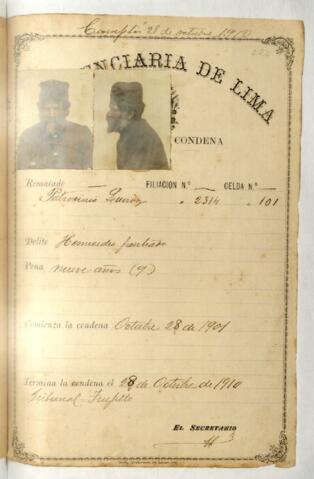 Cumplió 28 de octubre 1910
NCIARIA DE LIMA
CONDENA
Rematado FILIACION N.º CELDA N.º
Patrocinio „ 2314 „ 101
Delito Homicidio frustrado
Pena nueve años (9)
Comienza la condena Octubre 28 de 1901
Termina la condena el 28 de Octubre de 1910
Tribunal-Trujillo
EL SECRETARIO